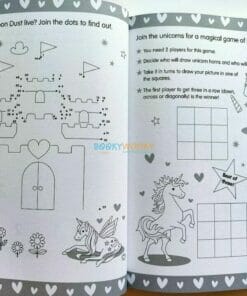 on Dust live? Join the dots to find out.
BOOKYWOOKY
Join the unicorns for a magical game of
You need 2 players for this game.
Decide who will draw unicorn horns and who will
Take it in turns to draw your picture in one of
the squares.
The first player to get three in a row (down,
across or diagonally) is the winner!
Best of
three!